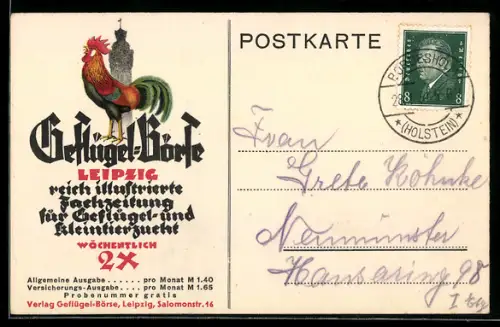 Geflügel-Börse
LEIPZIG
reich illustrierte
Fachzeitung
für Geflügel- und
Kleintierzucht
WÖCHENTLICH
2X
Allgemeine Ausgabe ...... pro Monat M 1.40
Versicherungs-Ausgabe .... pro Monat M 1.65
Probenummer gratis
Verlag Geflügel-Börse, Leipzig, Salomonstr. 16
POSTKARTE
8 8
(HOLSTEIN)
Frau
Grete Köhnke
Neumünster
Hansaring 98
I